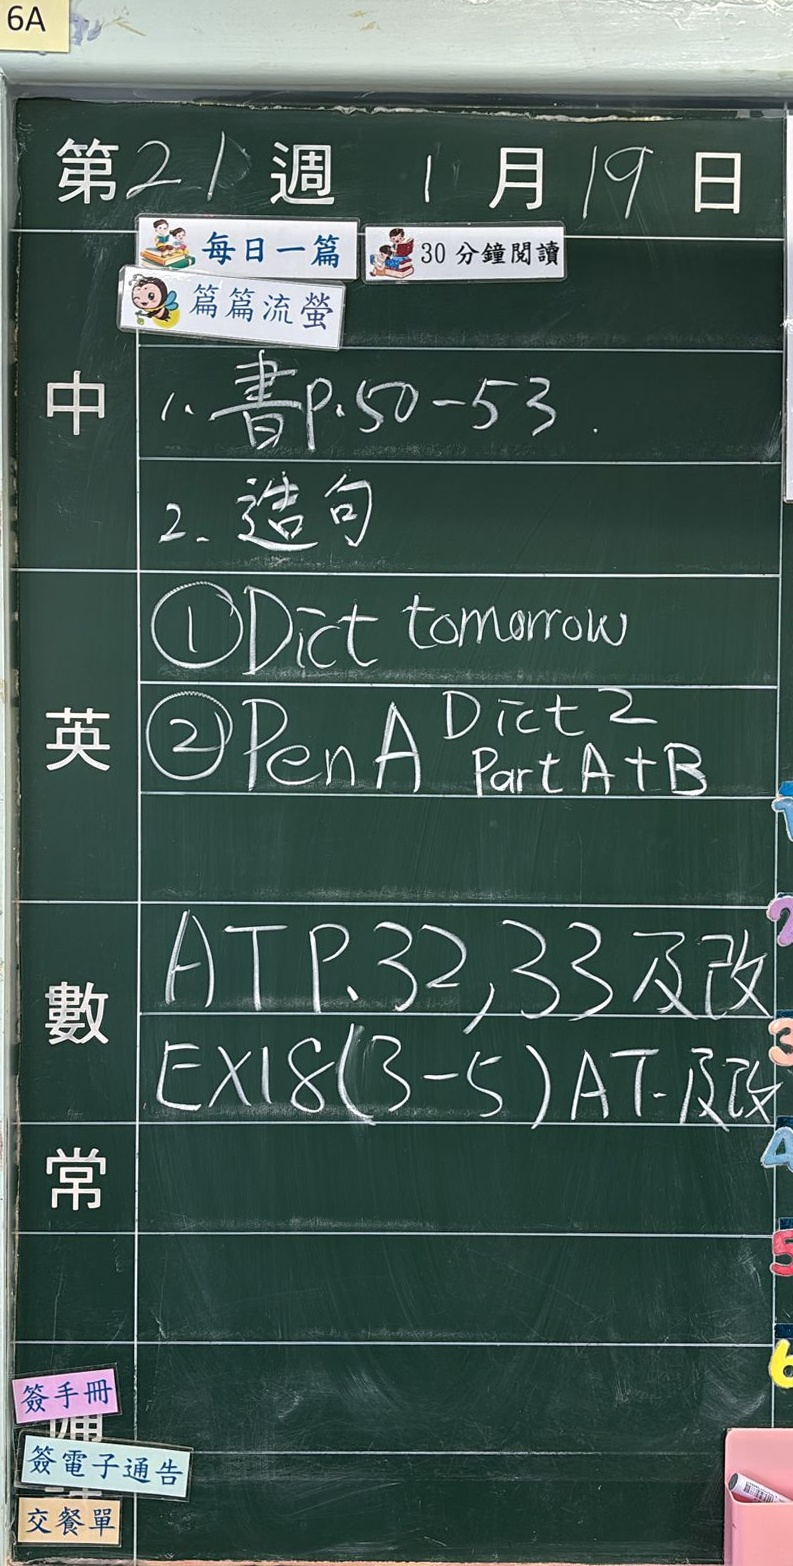 6A
第21週 1月19日
每日一篇 30分鐘閱讀
篇篇流螢
中
1. 書P.50-53.
2. 造句
英
①Dict tomorrow
②Pen A Dict 2
Part A+B
數
AT P.32,33及改
EX18(3-5)AT.及改
常
簽手冊
簽電子通告
交餐單
1
2
3
4
5
6